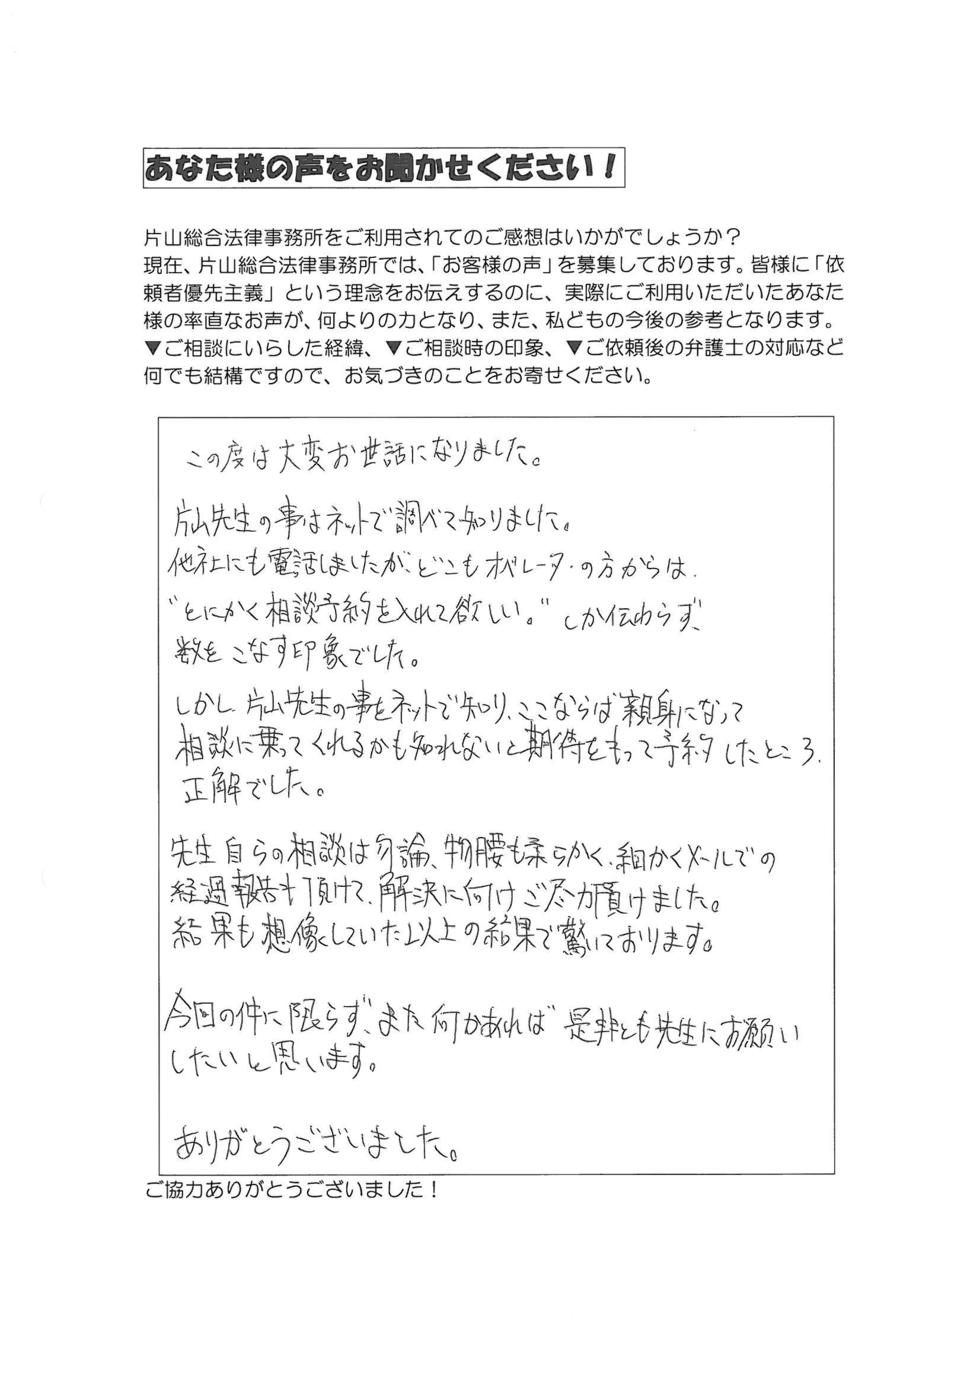 あなた様の声をお聞かせください！
片山総合法律事務所をご利用されてのご感想はいかがでしょうか？
現在、片山総合法律事務所では、「お客様の声」を募集しております。皆様に「依
頼者優先主義」という理念をお伝えするのに、実際にご利用いただいたあなた
様の率直なお声が、何よりの力となり、また、私どもの今後の参考となります。
▼ご相談にいらした経緯、▼ご相談時の印象、▼ご依頼後の弁護士の対応など
何でも結構ですので、お気づきのことをお寄せください。
この度は大変お世話になりました。
片山先生の事はネットで調べて知りました。
他社にも電話しましたが、どこもオペレーターの方からは、
"とにかく相談予約を入れて欲しい。"しか伝わらず、
数をこなす印象でした。
しかし、片山先生の事をネットで知り、ここならば親身になって
相談に乗ってくれるかも知れないと期待をもって予約したところ、
正解でした。
先生自らの相談は勿論、物腰も柔らかく、細かくメールでの
経過報告も頂けて、解決に向けご尽力頂けました。
結果も想像していた以上の結果で驚いております。
今回の件に限らず、また何かあれば是非とも先生にお願い
したいと思います。
ありがとうございました。
ご協力ありがとうございました！